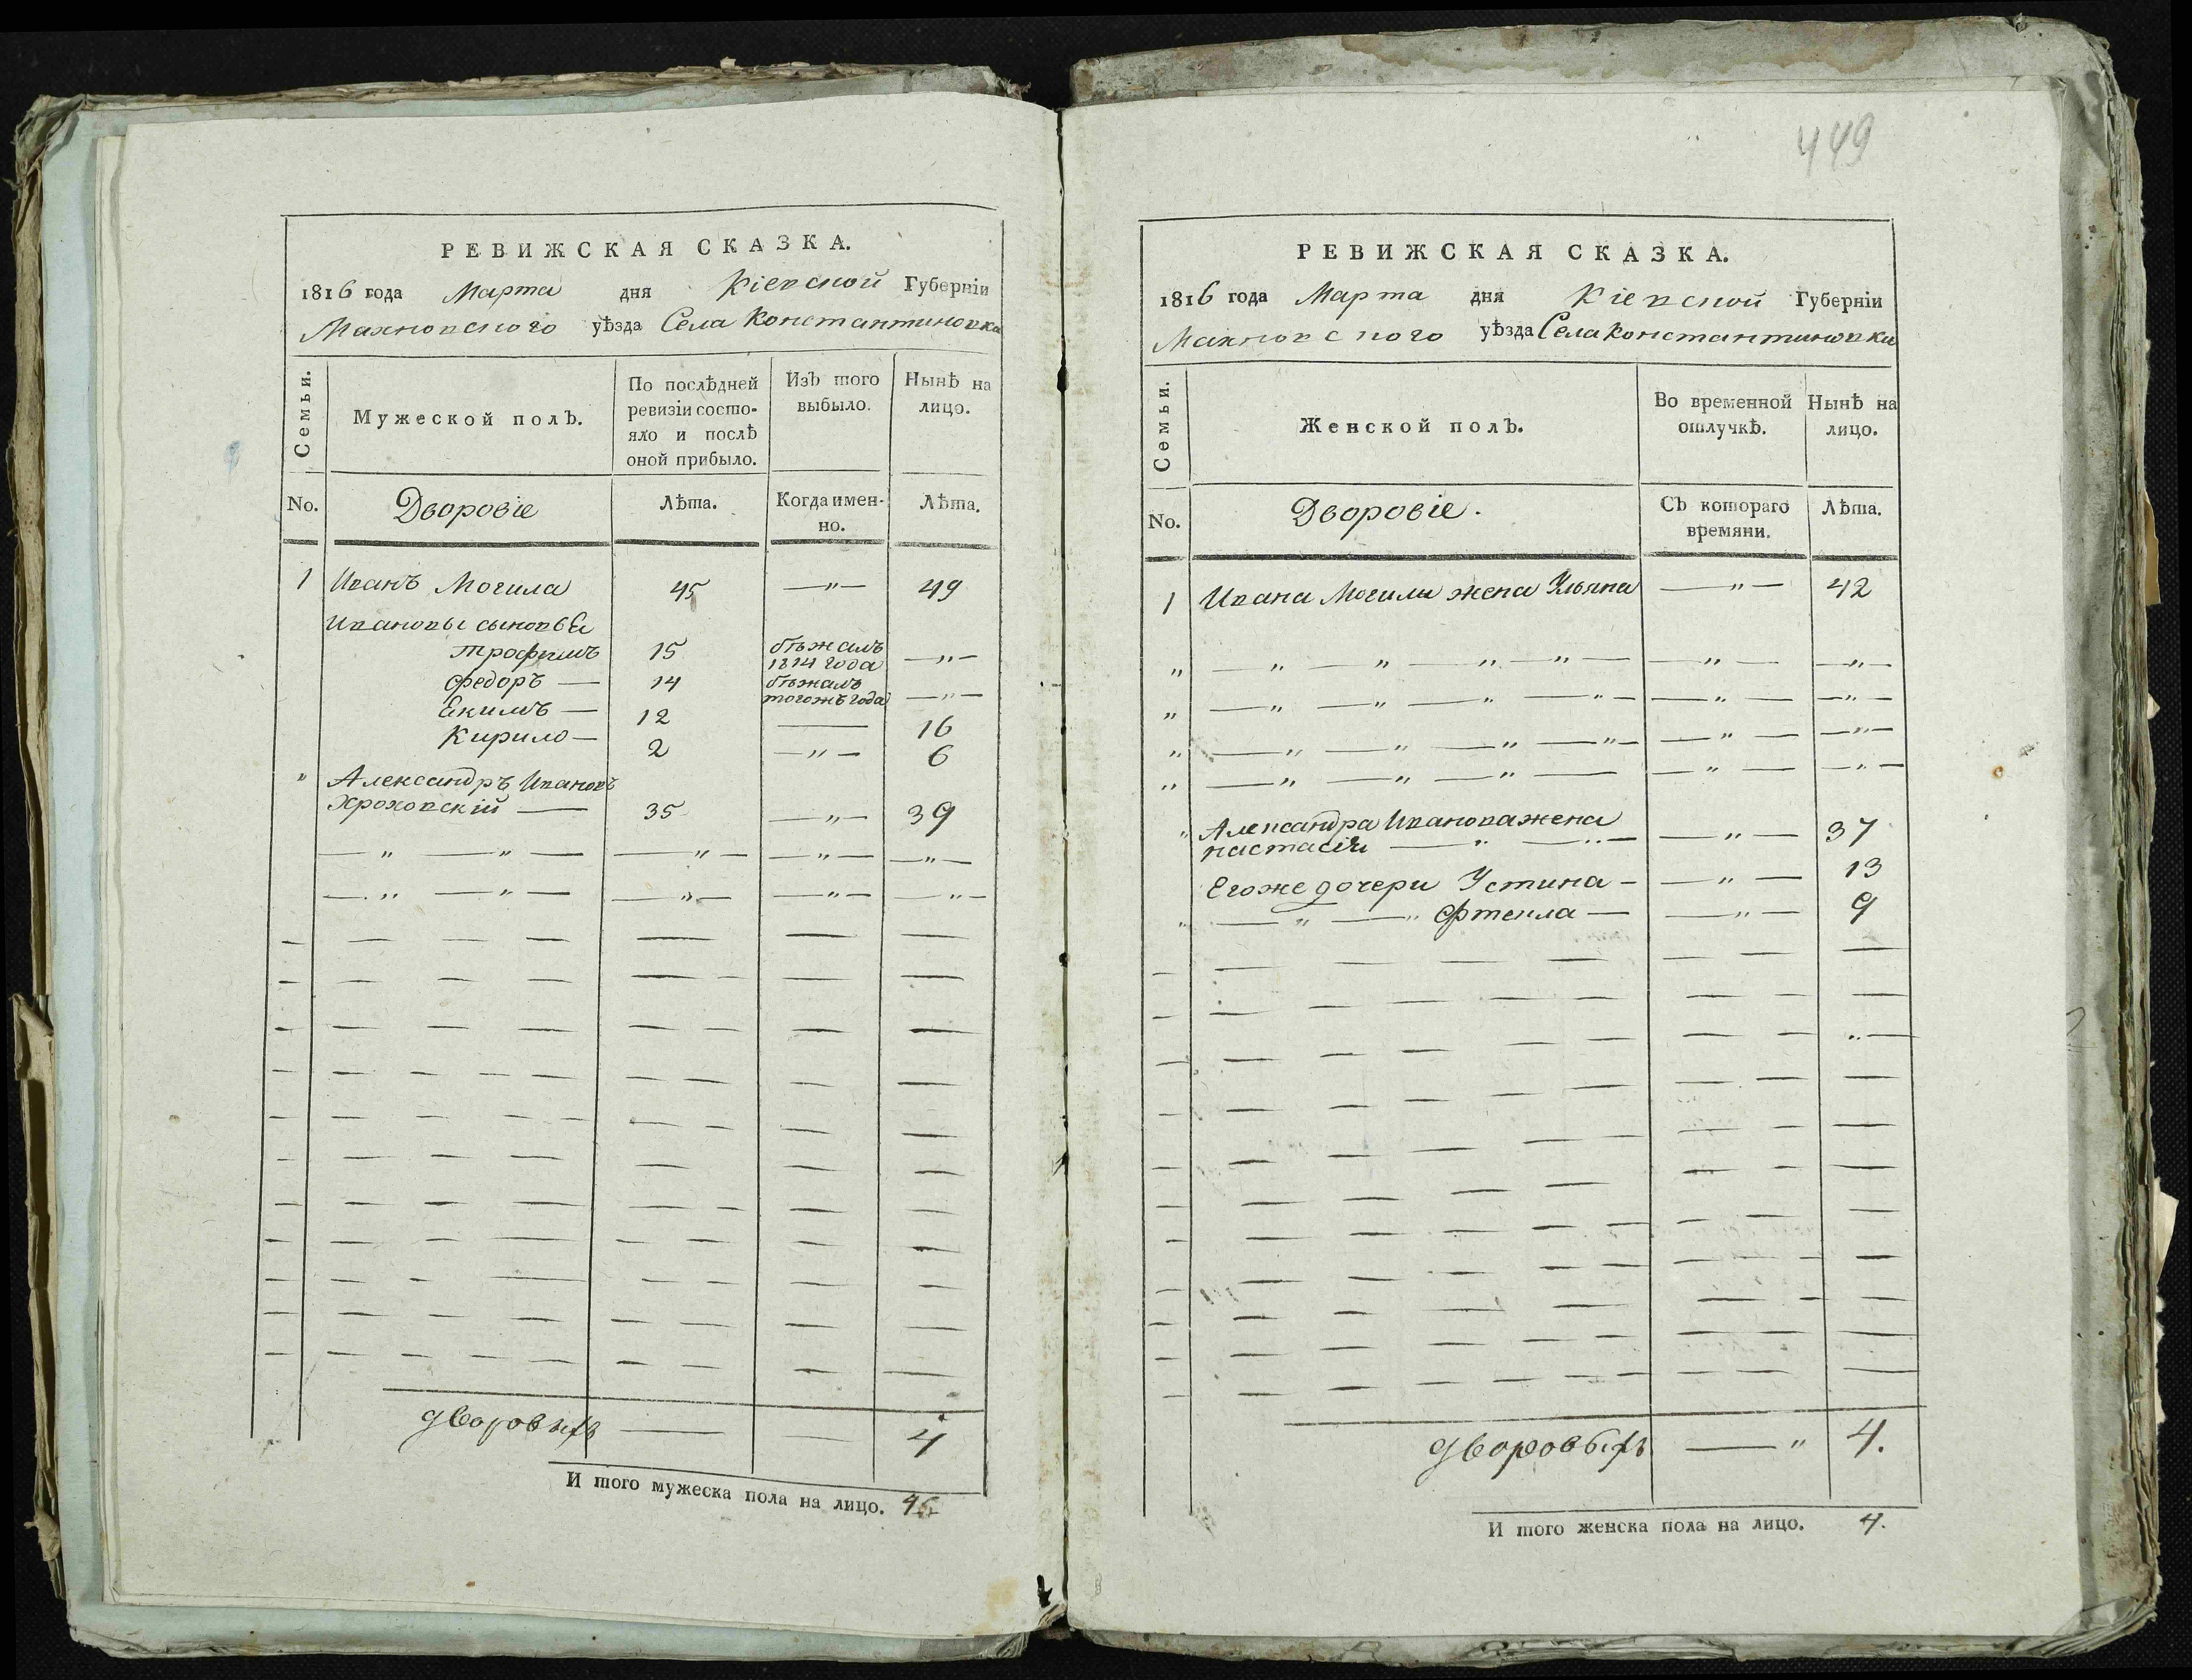 РЕВИЖСКАЯ СКАЗКА.
1816 года Марта дня Кіевской Губерніи
Махновского уѣзда Села Константиновки
Семьи.
Мужеской полъ.
По послѣдней
ревизіи состо-
яло и послѣ
оной прибыло.
Изъ того
выбыло.
Нынѣ на
лицо.
No.
Дворовіе
Лѣта.
Когда имен-
но.
Лѣта.
1 Иванъ Могила 45 —"— 49
Ивановы сыновЬя
Трофимъ 15 бѣжалъ 1814 года —"—
Федоръ — 14 бѣжалъ тогожъ года —"—
Екимъ — 12 — 16
Кирило — 2 —"— 6
" Александръ Ивановъ
Хроховскій — 35 —"— 39
дворовыхъ — — 4
И того мужеска пола на лицо. 4
449
РЕВИЖСКАЯ СКАЗКА.
1816 года Марта дня Кіевской Губерніи
Махновского уѣзда Села Константиновки
Семьи.
Женской полъ.
Во временной
отлучкѣ.
Нынѣ на
лицо.
No.
Дворовіе.
Съ котораго
времяни.
Лѣта.
1 Ивана Могилы жена Ульяна —"— 42
" Александра Иванова жена
настасія —"— 37
Егоже дочери Устина — —"— 13
" —"— —"— Фтекла — —"— 9
дворовыхъ —" 4.
И того женска пола на лицо. 4.